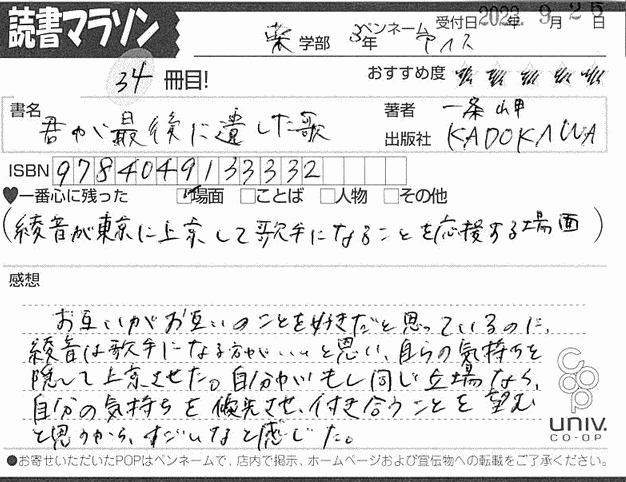 読書マラソン
薬学部 3年 ペンネーム アイス 受付日2022年9月26日
34冊目! おすすめ度
書名 君が最後に遺した歌 著者 一条岬
出版社 KADOKAWA
ISBN 9784049133332
♥一番心に残った ☑場面 □ことば □人物 □その他
(綾音が東京に上京して歌手になることを応援する場面)
感想
お互いがお互いのことを好きだと思っているのに、
綾音は歌手になる方がいいと思い、自らの気持ちを
隠して上京させた。自分がもし同じ立場なら、
自分の気持ちを優先させ、付き合うことを望む
と思うから、すごいなと感じた。
coop
univ.
CO-OP
●お寄せいただいたPOPはペンネームで、店内で掲示、ホームページおよび宣伝物への転載をご了承ください。